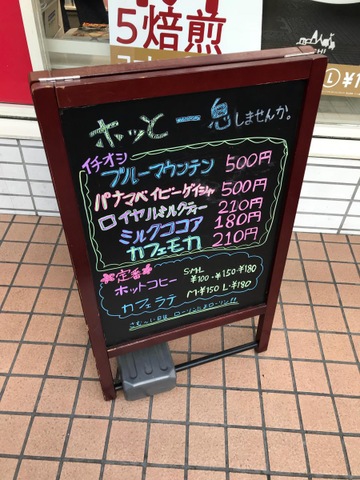 5焙煎
Ⓛ¥1
ホッと一息しませんか。
イチオシ
ブルーマウンテン 500円
パナマベイビーゲイシャ 500円
ロイヤルミルクティー 210円
ミルクココア 180円
カフェモカ 210円
定番
S M L
ホットコヒー ¥100・¥150・¥180
カフェラテ M・¥150 L・¥180